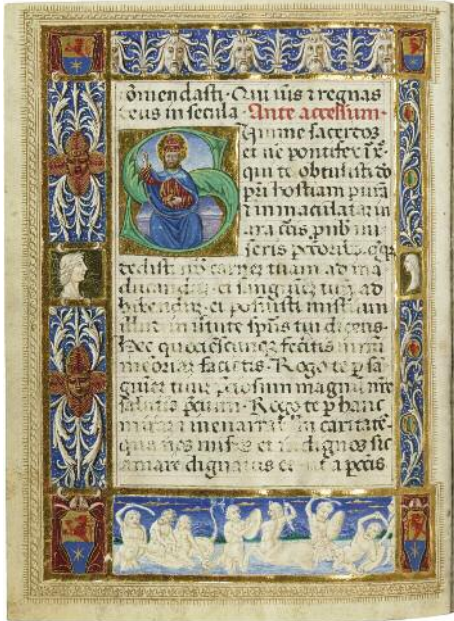 comendasti · Qui vivis z regnas
deus in secula · Ante accessum ·
Summe sacerdos
et ve pontifex
qui te obtulisti do
pri hostiam puram
z immaculatam in
ara pro nobis mi
seris
dedisti nob carnem tuam ad ma
ducandum et sanguinem tuum ad
bibendum et posuisti misterium
illud in virtute spus tui dicens ·
Hec quotiescunq feceritis in mei
memoriam facietis · Rogo te p sa
guinem tuum magnum nre
salutis precium · Rogo te p hanc
miram z inenarrabilem caritate
qua nos miseros et indignos sic
amare dignatus es a peccatis